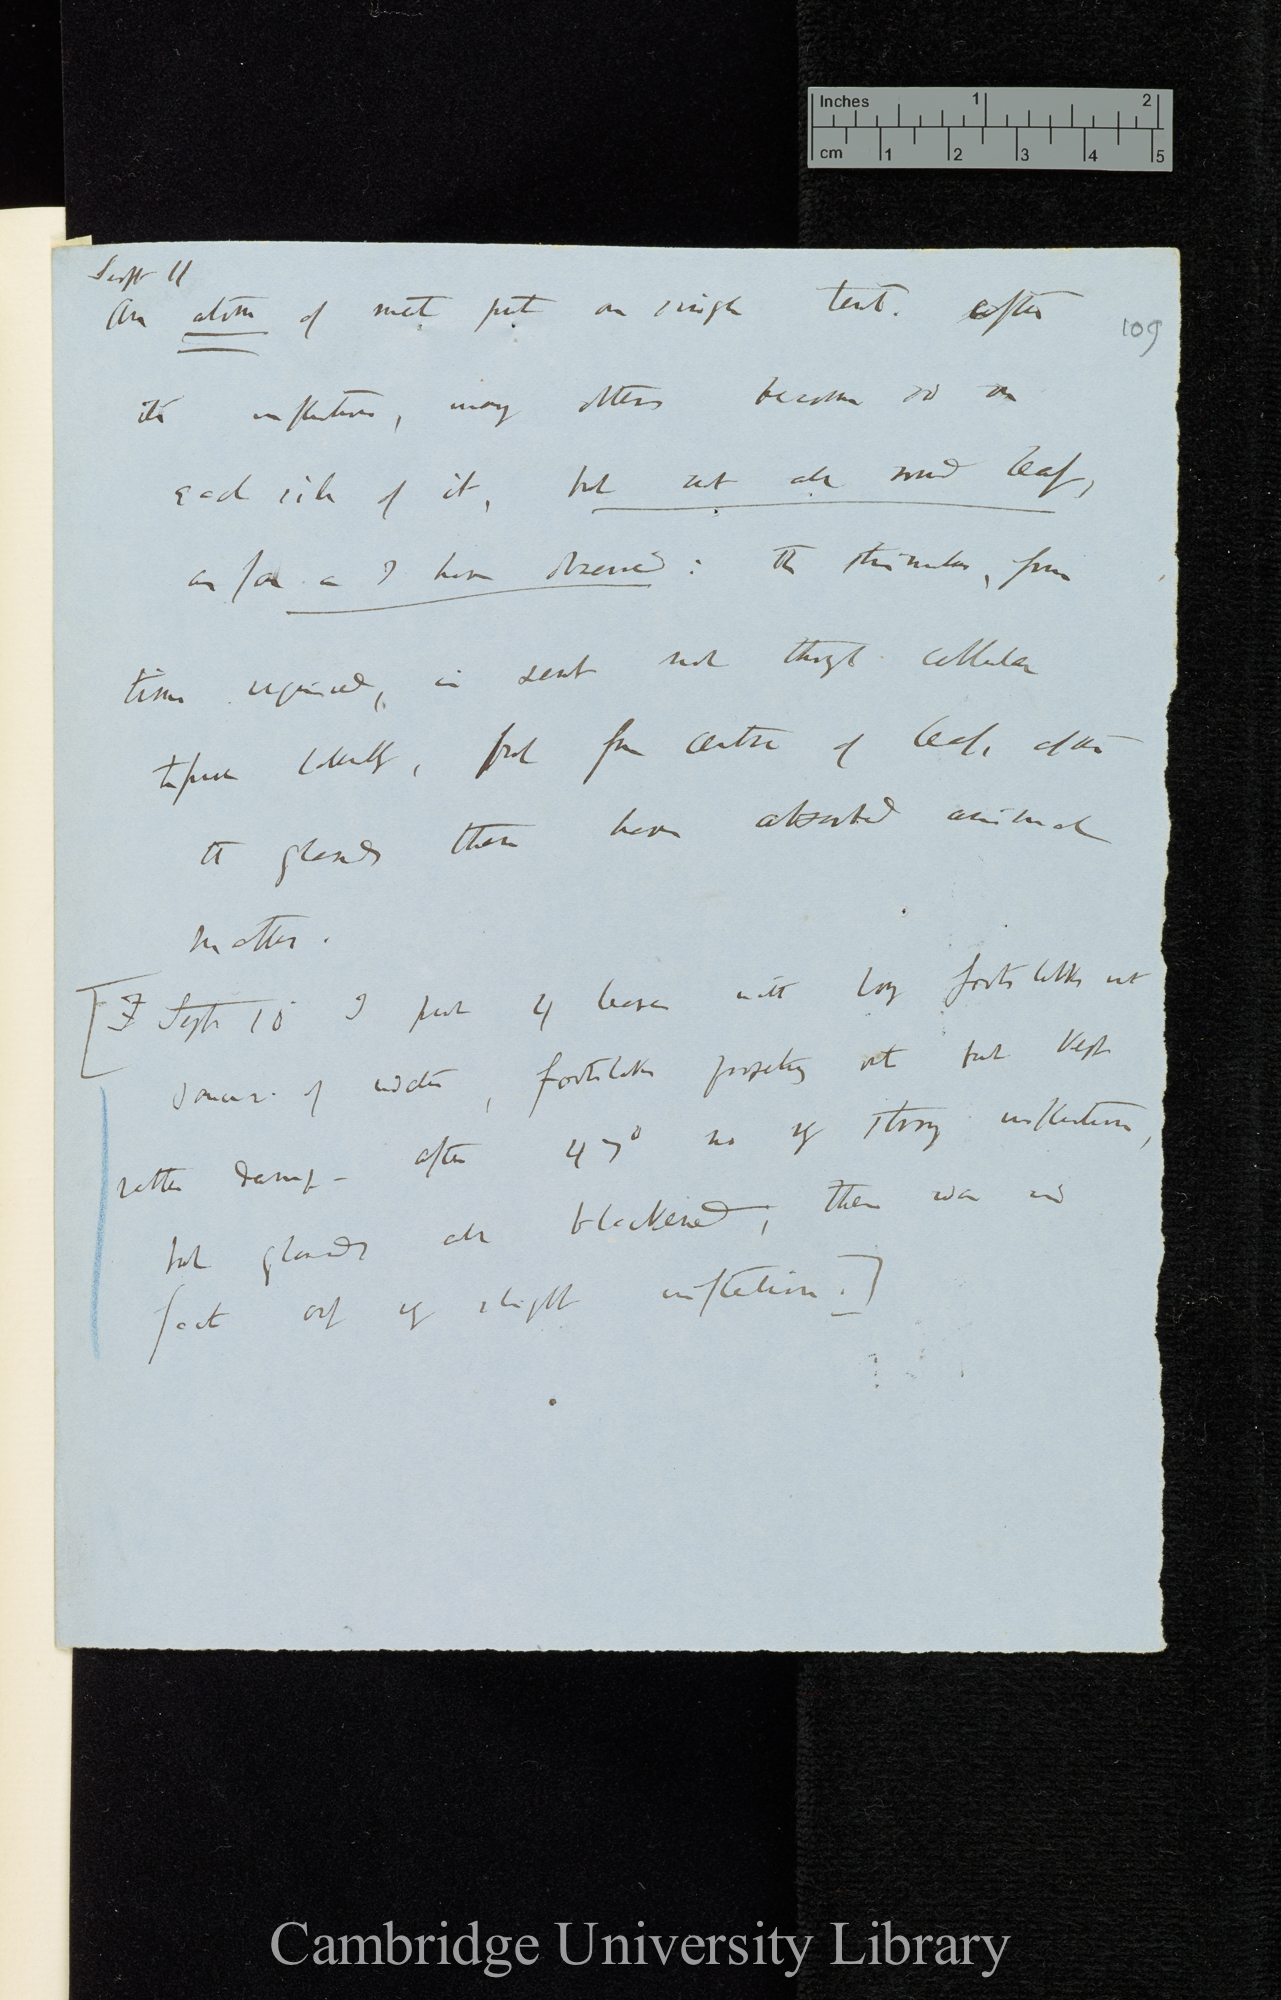 Inches 1 2
cm 1 2 3 4 5
Sept 11
An atom of meat put on single tent. after
109
its inflection, many others become so on
each side of it, but not all round leaf,
as far as I have observed: The stimulus, from
time required, is sent not through cellular
tissue laterally, but from centre of leaf, after
the glands there have absorbed animal
matter.
[Sept 10 I put 4 leaves with long footstalks
of water, footstalks projecting out but kept
rather damp - after 47° no strong inflection,
but glands all blackened; there was in
fact only slight inflection.]
Cambridge University Library